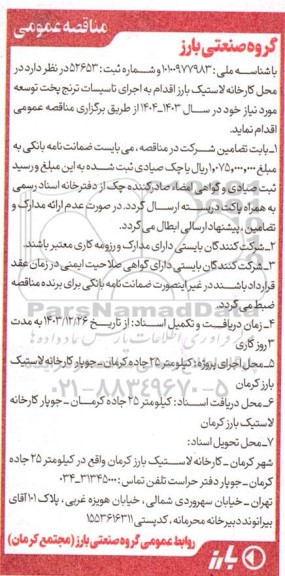 مناقصه عمومی
گروه صنعتی بارز
با شناسه ملی: ۱۰۱۰۰۹۷۷۹۸۳ و شماره ثبت: ۵۲۶۵۳ در نظر دارد در
محل کارخانه لاستیک بارز اقدام به اجرای تاسیسات ترنج پخت توسعه
مورد نیاز خود در سال ۱۴۰۳-۱۴۰۴ از طریق برگزاری مناقصه عمومی
اقدام نماید.
۱-بابت تضامین شرکت در مناقصه، می بایست ضمانت نامه بانکی به
مبلغ ۱,۰۷۵,۰۰۰,۰۰۰ ریال یا چک صیادی ثبت شده به این مبلغ و رسید
ثبت صیادی و گواهی امضاء صادرکننده چک از دفترخانه اسناد رسمی
به همراه پاکت دربسته ارسال گردد. در صورت عدم ارائه مدارک و
تضامین، پیشنهاد ارسالی ابطال می گردد.
۲-شرکت کنندگان بایستی دارای مدارک و رزومه کاری معتبر باشند.
۳-شرکت کنندگان بایستی دارای گواهی صلاحیت ایمنی در زمان عقد
قرارداد باشند در غیر اینصورت ضمانت نامه بانکی برای برنده مناقصه
ضبط می گردد.
۴-زمان دریافت و تکمیل اسناد: از تاریخ ۱۴۰۳/۱۲/۲۶ به مدت
۳ روز کاری
۵-محل اجرای پروژه: کیلومتر ۲۵ جاده کرمان-جوپار کارخانه لاستیک
بارز کرمان
۶-محل دریافت اسناد: کیلومتر ۲۵ جاده کرمان - جوپار کارخانه
لاستیک بارز کرمان
۷-محل تحویل اسناد:
شهر کرمان-کارخانه لاستیک بارز کرمان واقع در کیلومتر ۲۵ جاده
کرمان-جوپار دفتر حراست تلفن تماس: ۳۱۳۴۵۰۰۰-۰۳۴
تهران - خیابان سهروردی شمالی، خیابان هویزه غربی، پلاک ۱۰۱ آقای
بیرانوند دبیرخانه محرمانه، کدپستی ۱۵۵۳۶۱۶۳۱۱
روابط عمومی گروه صنعتی بارز (مجتمع کرمان)
بارز
ParsNamadData
۰۲۱-۸۸۳۴۹۶۷۰-۵